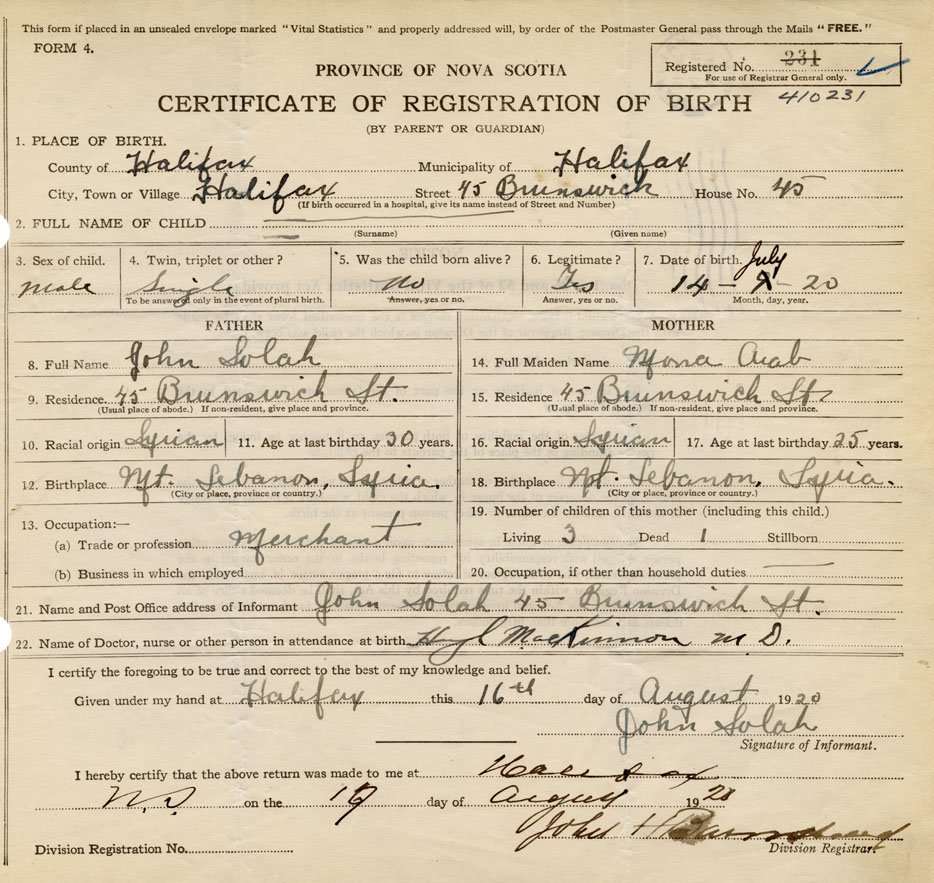 This form if placed in an unsealed envelope marked "Vital Statistics" and properly addressed will, by order of the Postmaster General pass through the Mails "FREE."
FORM 4.
Registered No. 231
For use of Registrar General only.
410231
PROVINCE OF NOVA SCOTIA
CERTIFICATE OF REGISTRATION OF BIRTH
(BY PARENT OR GUARDIAN)
1. PLACE OF BIRTH.
County of Halifax Municipality of Halifax
City, Town or Village Halifax Street 45 Brunswick House No. 45
(If birth occurred in a hospital, give its name instead of Street and Number)
2. FULL NAME OF CHILD
(Surname) (Given name)
3. Sex of child. 4. Twin, triplet or other? 5. Was the child born alive? 6. Legitimate? 7. Date of birth. July
Male Single No Yes 14 - 7 - 20
To be answered only in the event of plural birth. Answer, yes or no. Answer, yes or no. Month, day, year.
FATHER MOTHER
8. Full Name John Solah 14. Full Maiden Name Mona Arab
9. Residence. 45 Brunswick St. 15. Residence 45 Brunswick St.
(Usual place of abode.) If non-resident, give place and province. (Usual place of abode.) If non-resident, give place and province.
10. Racial origin Syrian 11. Age at last birthday 30 years. 16. Racial origin. Syrian 17. Age at last birthday 25 years.
12. Birthplace Mt. Lebanon, Syria. 18. Birthplace Mt. Lebanon, Syria.
(City or place, province or country.) (City or place, province or country.)
13. Occupation:— 19. Number of children of this mother (including this child.)
(a) Trade or profession Merchant Living 3 Dead 1 Stillborn
(b) Business in which employed 20. Occupation, if other than household duties
21. Name and Post Office address of Informant John Solah 45 Brunswick St.
22. Name of Doctor, nurse or other person in attendance at birth MacKinnon M.D.
I certify the foregoing to be true and correct to the best of my knowledge and belief.
Given under my hand at Halifax this 16th day of August 1920
John Solah
Signature of Informant.
I hereby certify that the above return was made to me at Halifax
N.S. on the day of August 1920
John H
Division Registration No. Division Registrar.